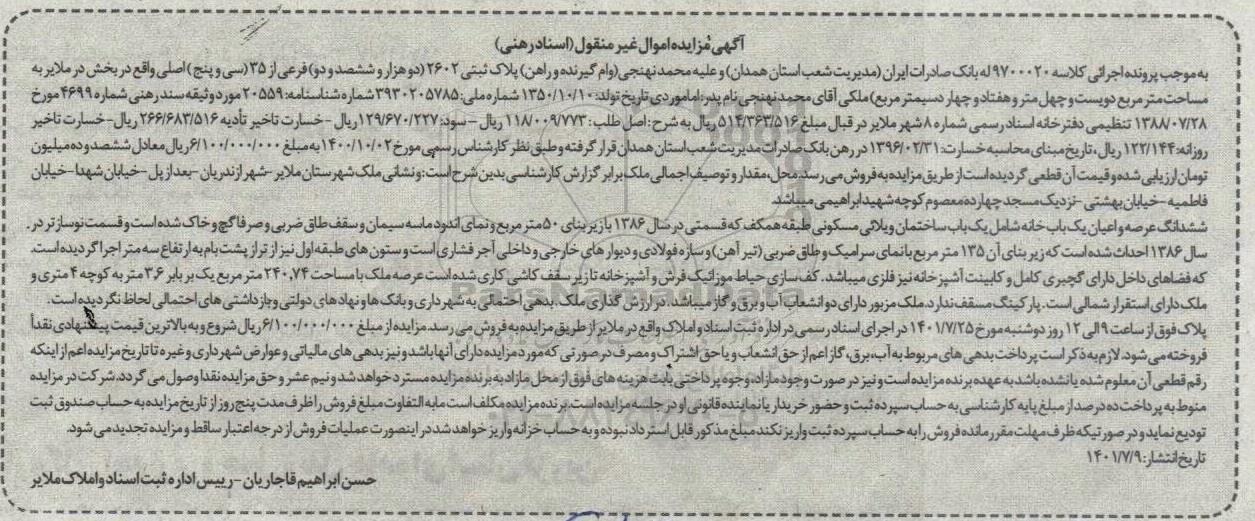 آگهی مزایده اموال غیر منقول (اسناد رهنی)
به موجب پرونده اجرائی کلاسه ۹۷۰۰۰۲۰ له بانک صادرات ایران (مدیریت شعب استان همدان) و علیه محمد نهنجی (وام گیرنده و راهن) پلاک ثبتی ۲۶۰۲ (دو هزار و ششصد و دو) فرعی از ۳۵ (سی و پنج) اصلی واقع در بخش در ملایر به
مساحت متر مربع دویست و چهل متر و هفتاد و چهار دسیمتر مربع) ملکی آقای محمد نهنجی نام پدر: اماموردی تاریخ تولد: ۱۳۵۰/۱۰/۱۰ شماره ملی: ۳۹۳۰۲۰۵۷۸۵ شماره شناسنامه: ۲۰۵۵۹ مورد وثیقه سند رهنی شماره ۴۶۹۹ مورخ
۱۳۸۸/۰۷/۲۸ تنظیمی دفترخانه اسناد رسمی شماره ۸ شهر ملایر در قبال مبلغ ۵۱۴/۳۶۳/۵۱۶ ریال به شرح: اصل طلب: ۱۱۸/۰۰۹/۷۷۳ ریال – سود: ۱۲۹/۶۷۰/۲۲۷ ریال - خسارت تاخیر تأدیه ۲۶۶/۶۸۳/۵۱۶ ریال- خسارت تاخیر
روزانه: ۱۲۲/۱۴۴ ریال، تاریخ مبنای محاسبه خسارت: ۱۳۹۶/۰۲/۳۱ در رهن بانک صادرات مدیریت شعب استان همدان قرار گرفته و طبق نظر کارشناس رسمی مورخ ۱۴۰۰/۱۰/۰۲ به مبلغ ۶/۱۰۰/۰۰۰/۰۰۰ ریال معادل ششصد و ده میلیون
تومان ارزیابی شده و قیمت آن قطعی گردیده است از طریق مزایده به فروش می رسد. محل، مقدار و توصیف اجمالی ملک برابر گزارش کارشناسی بدین شرح است: و نشانی ملک شهرستان ملایر - شهر ازندریان - بعد از پل - خیابان شهدا - خیابان
فاطمیه - خیابان بهشتی - نزدیک مسجد چهارده معصوم کوچه شهید ابراهیمی میباشد.
ششدانگ عرصه و اعیان یک باب خانه شامل یک باب ساختمان ویلائی مسکونی طبقه همکف که قسمتی در سال ۱۳۸۶ با زیر بنای ۵۰ متر مربع و نمای اندود ماسه سیمان و سقف طاق ضربی و صرفا گچ و خاک شده است و قسمت نوساز تر در
سال ۱۳۸۶ احداث شده است که زیر بنای آن ۱۳۵ متر مربع با نمای سرامیک و طاق ضربی (تیر آهن) و سازه فولادی و دیوار های خارجی و داخلی آجر فشاری است و ستون های طبقه اول نیز از تراز پشت بام به ارتفاع سه متر اجرا گردیده است.
که فضاهای داخل دارای گچبری کامل و کابینت آشپزخانه نیز فلزی میباشد. کف سازی حیاط موزائیک فرش و آشپزخانه تا زیر سقف کاشی کاری شده است عرصه ملک با مساحت ۲۴۰٫۷۴ متر مربع یک بر بابر ۳٫۶ متر به کوچه ۴ متری و
ملک دارای استقرار شمالی است. پارکینگ مسقف ندارد. ملک مزبور دارای دو انشعاب آب و برق و گاز میباشد. در ارزش گذاری ملک. بدهی احتمالی به شهرداری و بانک ها و نهاد های دولتی و بازداشتی های احتمالی لحاظ نگردیده است.
پلاک فوق از ساعت ۹ الی ۱۲ روز دوشنبه مورخ ۱۴۰۱/۷/۲۵ در اجرای اسناد رسمی در اداره ثبت اسناد و املاک واقع در ملایر از طریق مزایده به فروش می رسد. مزایده از مبلغ ۶/۱۰۰/۰۰۰/۰۰۰ ریال شروع و به بالاترین قیمت پیشنهادی نقداً
فروخته می شود. لازم به ذکر است پرداخت بدهی های مربوط به آب، برق، گاز اعم از حق انشعاب و یا حق اشتراک و مصرف در صورتی که مورد مزایده دارای آنها باشد و نیز بدهی های مالیاتی و عوارض شهرداری و غیره تا تاریخ مزایده اعم از اینکه
رقم قطعی آن معلوم شده یا نشده باشد به عهده برنده مزایده است و نیز در صورت وجود مازاد، وجوه پرداختی بابت هزینه های فوق از محل مازاد به برنده مزایده مسترد خواهد شد و نیم عشر و حق مزایده نقدا وصول می گردد. شرکت در مزایده
منوط به پرداخت ده درصد از مبلغ پایه کارشناسی به حساب سپرده ثبت و حضور خریدار یا نماینده قانونی او در جلسه مزایده است. برنده مزایده مکلف است مابه التفاوت مبلغ فروش را ظرف مدت پنج روز از تاریخ مزایده به حساب صندوق ثبت
تودیع نماید و در صورتیکه ظرف مهلت مقرر مانده فروش را به حساب سپرده ثبت واریز نکند مبلغ مذکور قابل استرداد نبوده و به حساب خزانه واریز خواهد شد در اینصورت عملیات فروش از درجه اعتبار ساقط و مزایده تجدید می شود.
تاریخ انتشار: ۱۴۰۱/۷/۹
حسن ابراهیم قاجاریان - رییس اداره ثبت اسناد و املاک ملایر